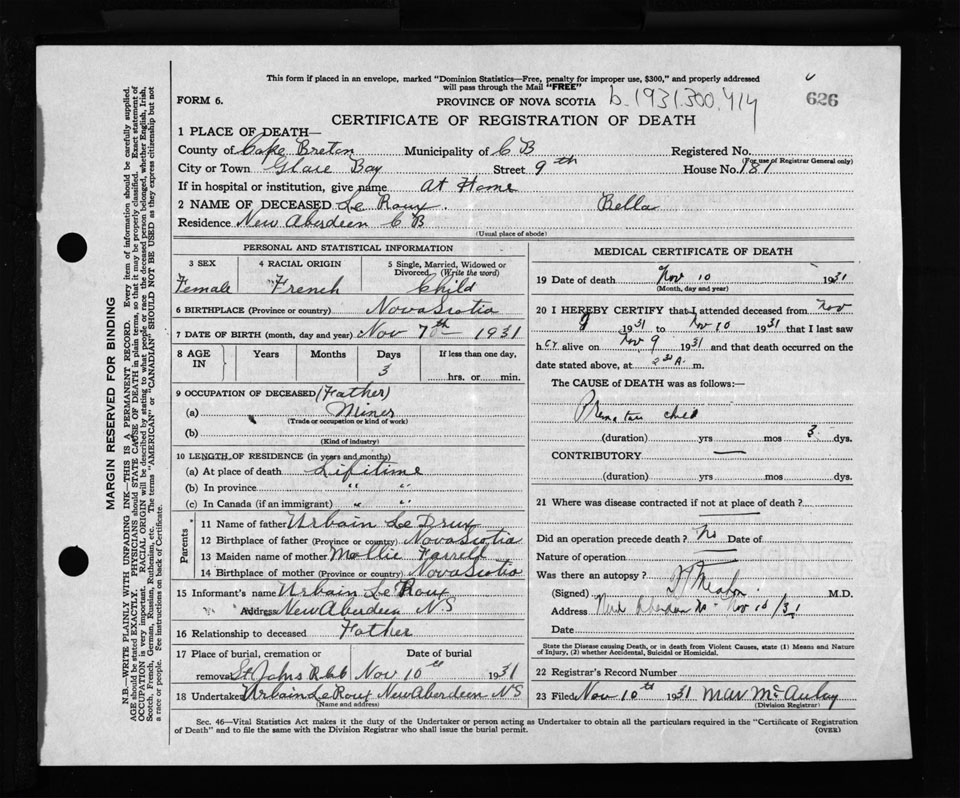 This form if placed in an envelope, marked "Dominion Statistics—Free, penalty for improper use, $300," and properly addressed
will pass through the Mail "FREE"
FORM 6.
PROVINCE OF NOVA SCOTIA
b.1931.300.414
626
CERTIFICATE OF REGISTRATION OF DEATH
1 PLACE OF DEATH—
County of Cape Breton Municipality of C B Registered No.
(For use of Registrar General only)
City or Town Glace Bay Street 9th House No. 181
If in hospital or institution, give name At Home
2 NAME OF DECEASED Le Roux. Bella
Residence New Aberdeen C B
(Usual place of abode)
PERSONAL AND STATISTICAL INFORMATION
3 SEX 4 RACIAL ORIGIN 5 Single, Married, Widowed or
Divorced. (Write the word)
Female French Child
6 BIRTHPLACE (Province or country) Nova Scotia
7 DATE OF BIRTH (month, day and year) Nov 7th 1931
8 AGE IN Years Months Days If less than one day,
3 hrs. or min.
9 OCCUPATION OF DECEASED (Father)
(a) Miner
(Trade or occupation or kind of work)
(b)
(Kind of industry)
10 LENGTH OF RESIDENCE (in years and months)
(a) At place of death Lifitime
(b) In province " "
(c) In Canada (if an immigrant) " "
Parents
11 Name of father Urbain Le Drux
12 Birthplace of father (Province or country) Nova Scotia
13 Maiden name of mother Mollie Farrell
14 Birthplace of mother (Province or country) Nova Scotia
15 Informant's name Urbain Le Roux
" " Address New Aberdeen N S
16 Relationship to deceased Father
17 Place of burial, cremation or Date of burial
removal St Johns Nov 10th 1931
18 Undertaker Urbain Le Roux New Aberdeen N S
(Name and address)
MEDICAL CERTIFICATE OF DEATH
19 Date of death Nov 10 1931
(Month, day and year)
20 I HEREBY CERTIFY that I attended deceased from Nov
9 1931 to Nov 10 1931 that I last saw
h er alive on Nov 9 1931 and that death occurred on the
date stated above, at A. m.
The CAUSE of DEATH was as follows:—
Premature child
(duration) yrs mos 3 dys.
CONTRIBUTORY —
(duration) yrs mos dys.
21 Where was disease contracted if not at place of death?
Did an operation precede death? No Date of
Nature of operation
Was there an autopsy?
(Signed) M.D.
Address New Aberdeen Nov 10/31
Date
State the Disease causing Death, or in death from Violent Causes, state (1) Means and Nature
of Injury, (2) whether Accidental, Suicidal or Homicidal.
22 Registrar's Record Number
23 Filed Nov 10th 1931 Mav McAulay
(Division Registrar)
Sec. 46—Vital Statistics Act makes it the duty of the Undertaker or person acting as Undertaker to obtain all the particulars required in the "Certificate of Registration
of Death" and to file the same with the Division Registrar who shall issue the burial permit. (OVER)
MARGIN RESERVED FOR BINDING
N.B.—WRITE PLAINLY WITH UNFADING INK—THIS IS A PERMANENT RECORD. Every item of information should be carefully supplied.
AGE should be stated EXACTLY. PHYSICIANS should STATE CAUSE OF DEATH in plain terms, so that it may be properly classified. Exact statement of
OCCUPATION is very important. RACIAL ORIGIN will be described by stating to what people or race the deceased person belonged, whether English, Irish,
Scotch, French, German, Russian, Ruthenian, etc. The terms "AMERICAN" or "CANADIAN" SHOULD NOT BE USED as they express citizenship but not
a race or people. See instructions on back of Certificate.